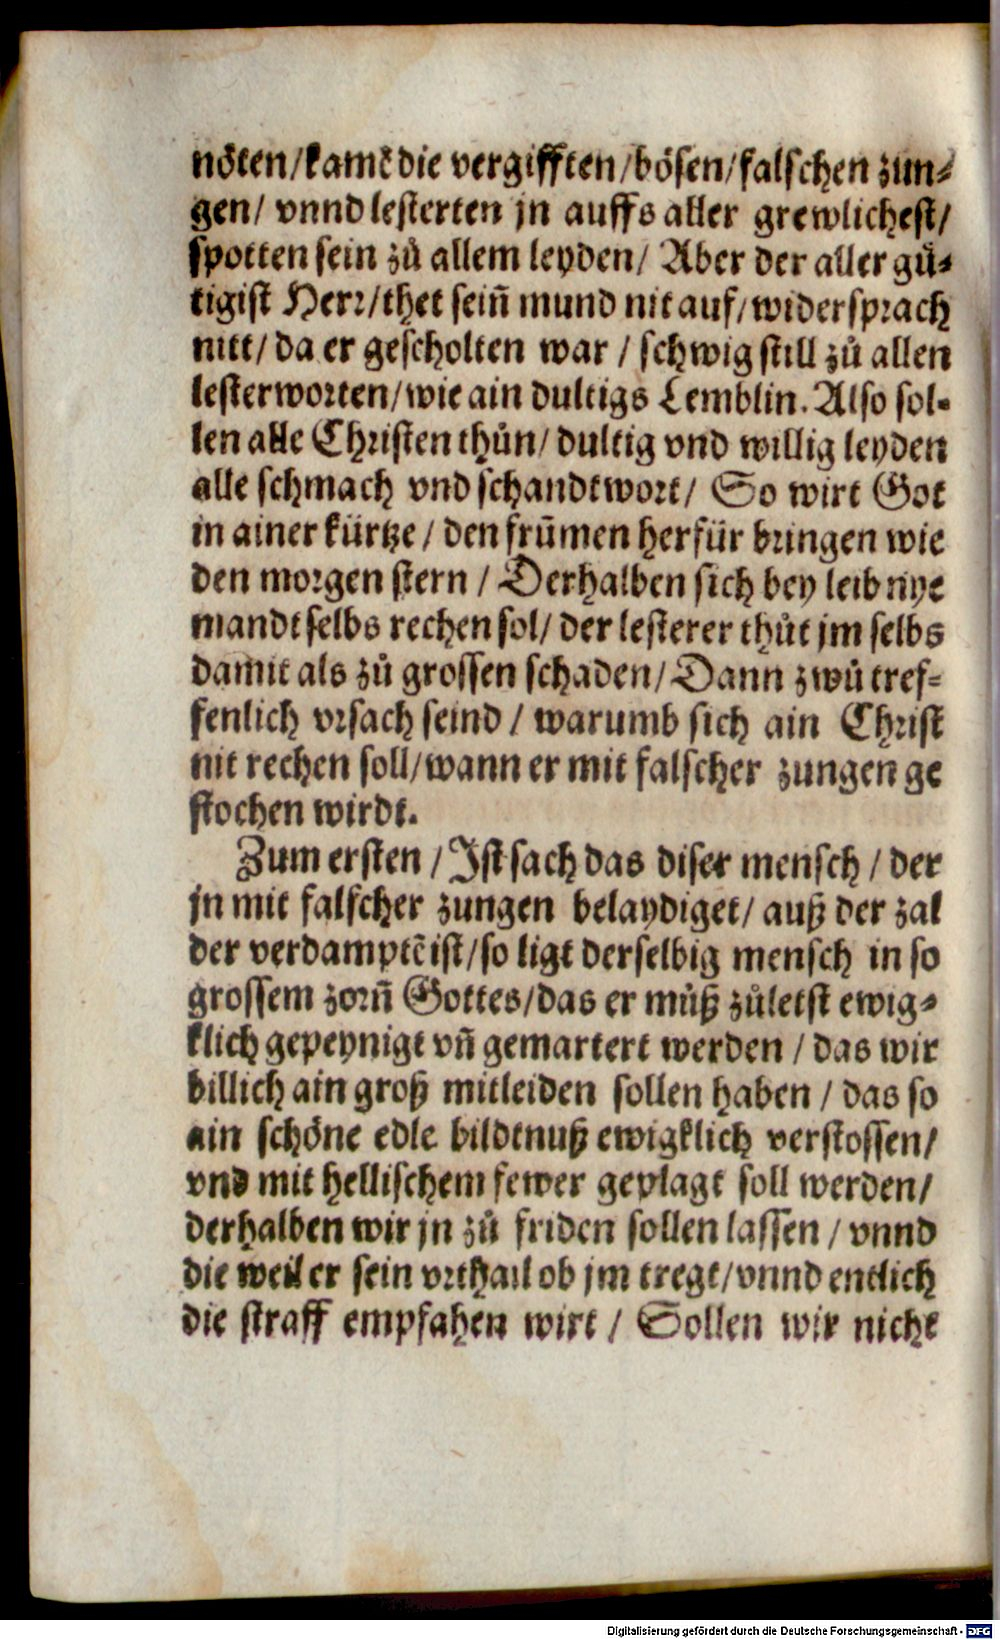 nöten/kamẽ die vergifften/bösen/falschen zun⸗
gen/ vnnd lesterten jn auffs aller grewlichest/
spotten sein zů allem leyden/ Aber der aller gü⸗
tigist Herr/thet seiñ mund nit auf/widersprach
nitt/da er gescholten war / schwig still zů allen
lesterworten/wie ain dultigs Lemblin. Also sol⸗
len alle Christen thůn/ dultig vnd willig leyden
alle schmach vnd schandtwort/ So wirt Got
in ainer kürtze / den frũmen herfür bringen wie
den morgen stern / Derhalben sich bey leib nye
mandt selbs rechen sol/ der lesterer thůt jm selbs
damit als zů grossen schaden/ Dann zwů tref⸗
fenlich vrsach seind / warumb sich ain Christ
nit rechen soll/wann er mit falscher zungen ge
stochen wirdt.
Zum ersten / Ist sach das diser mensch / der
jn mit falscher zungen belaydiget/ auß der zal
der verdamptẽ ist/so ligt derselbig mensch in so
grossem zorñ Gottes/das er můß zůletst ewig⸗
klich gepeynigt vñ gemartert werden / das wir
billich ain groß mitleiden sollen haben / das so
ain schöne edle bildtnuß ewigklich verstossen/
vnd mit hellischem fewer geplagt soll werden/
derhalben wir jn zů friden sollen lassen / vnnd
die weil er sein vrthail ob jm tregt/vnnd entlich
die straff empfahen wirt / Sollen wir nicht
Digitalisierung gefördert durch die Deutsche Forschungsgemeinschaft - DFG